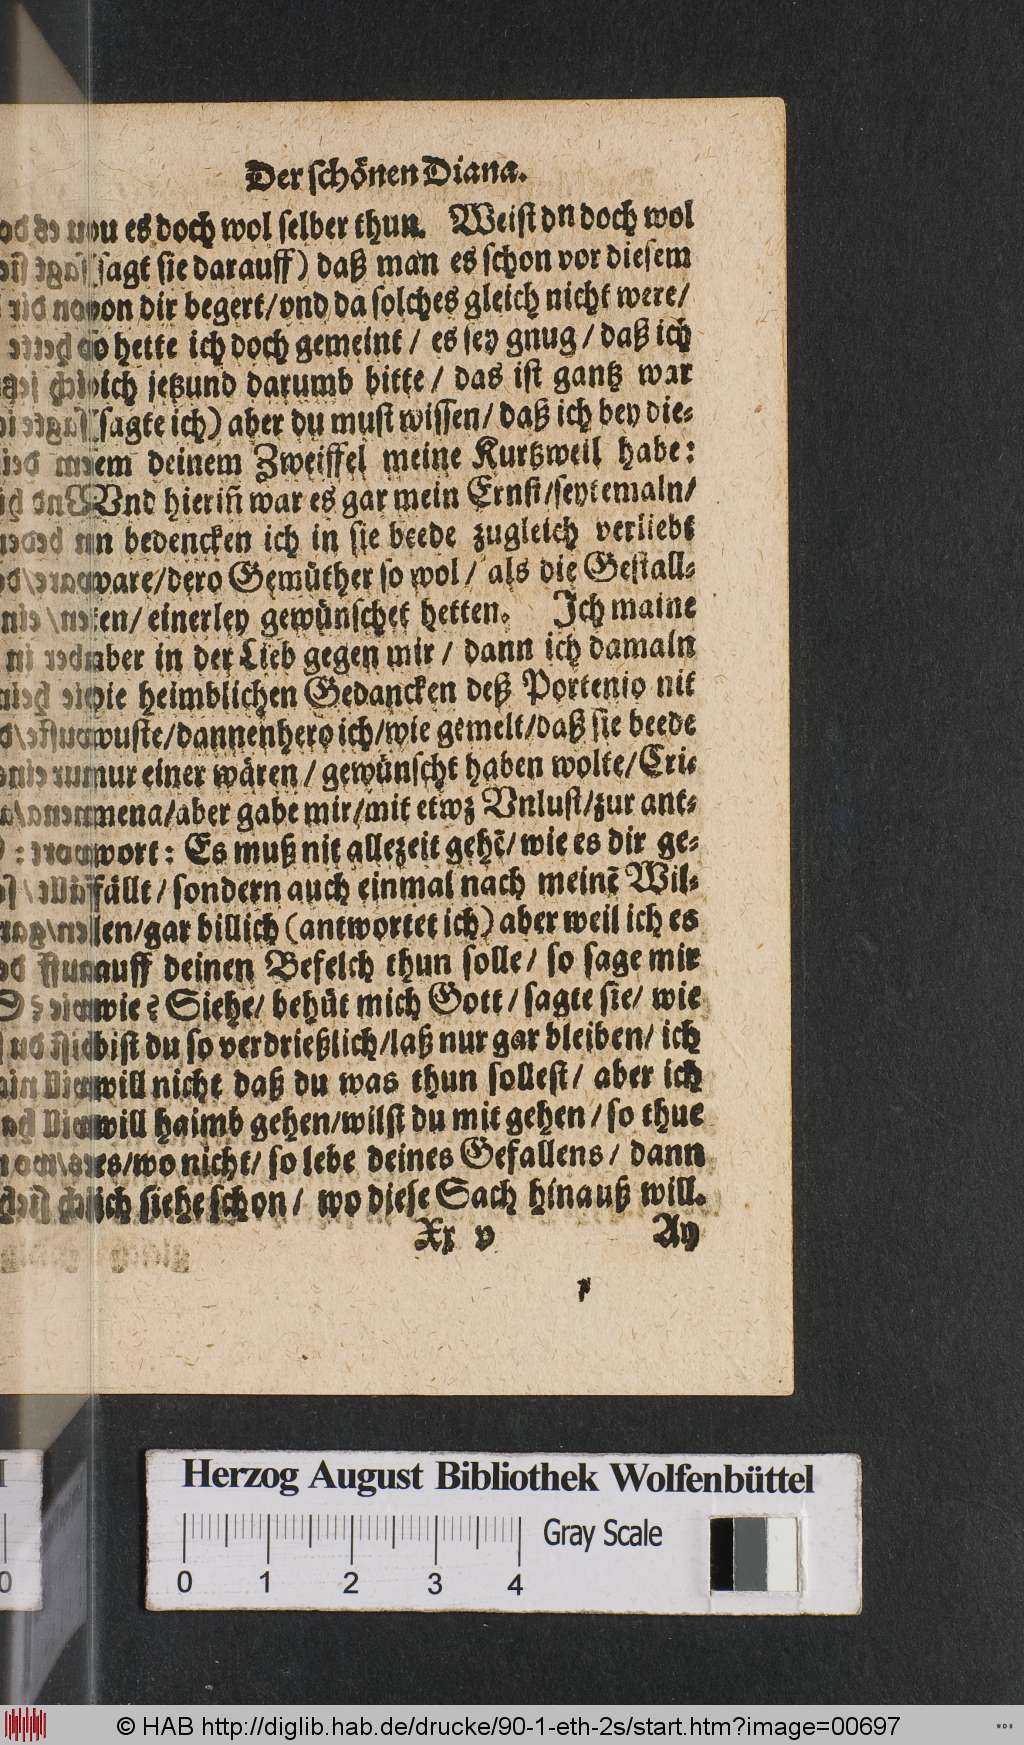 Der ſchönen Diana.
du es doch wol ſelber thun. Weiſt dn doch wol
(ſagt ſie darauff) daß man es ſchon vor dieſem
von dir begert/vnd da ſolches gleich nicht were/
ſo hette ich doch gemeint / es ſey gnug / daß ich
dich jetzund darumb bitte / das iſt gantz war
(ſagte ich) aber du muſt wiſſen/ daß ich bey die⸗
ſem deinem Zweiffel meine Kurtzweil habe:
Vnd hierin̄ war es gar mein Ernſt/ſeytemaln/
in bedencken ich in ſie beede zugleich verliebt
ware/dero Gemüther ſo wol / als die Geſtall⸗
ten/ einerley gewünſchet hetten. Ich maine
aber in der Lieb gegen mir / dann ich damaln
die heimblichen Gedancken deß Portenio nit
wuſte/dannenhero ich/wie gemelt/daß ſie beede
nur einer wären / gewünſcht haben wolte/Cri⸗
mena/aber gabe mir/mit etwz Vnluſt/zur ant⸗
wort: Es muß nit allezeit gehē/ wie es dir ge⸗
fällt / ſondern auch einmal nach meinē Wil⸗
len/gar billich (antwortet ich) aber weil ich es
auff deinen Befelch thun ſolle/ ſo ſage mir
wie? Siehe/ behüt mich Gott / ſagte ſie/ wie
biſt du ſo verdrießlich/laß nur gar bleiben/ ich
will nicht daß du was thun ſolleſt/ aber ich
will haimb gehen/wilſt du mit gehen / ſo thue
es/wo nicht/ ſo lebe deines Gefallens / dann
ich ſiehe ſchon / wo dieſe Sach hinauß will.
Xx v Ay
Herzog August Bibliothek Wolfenbüttel
Gray Scale
0 1 2 3 4
© HAB http://diglib.hab.de/drucke/90-1-eth-2s/start.htm?image=00697